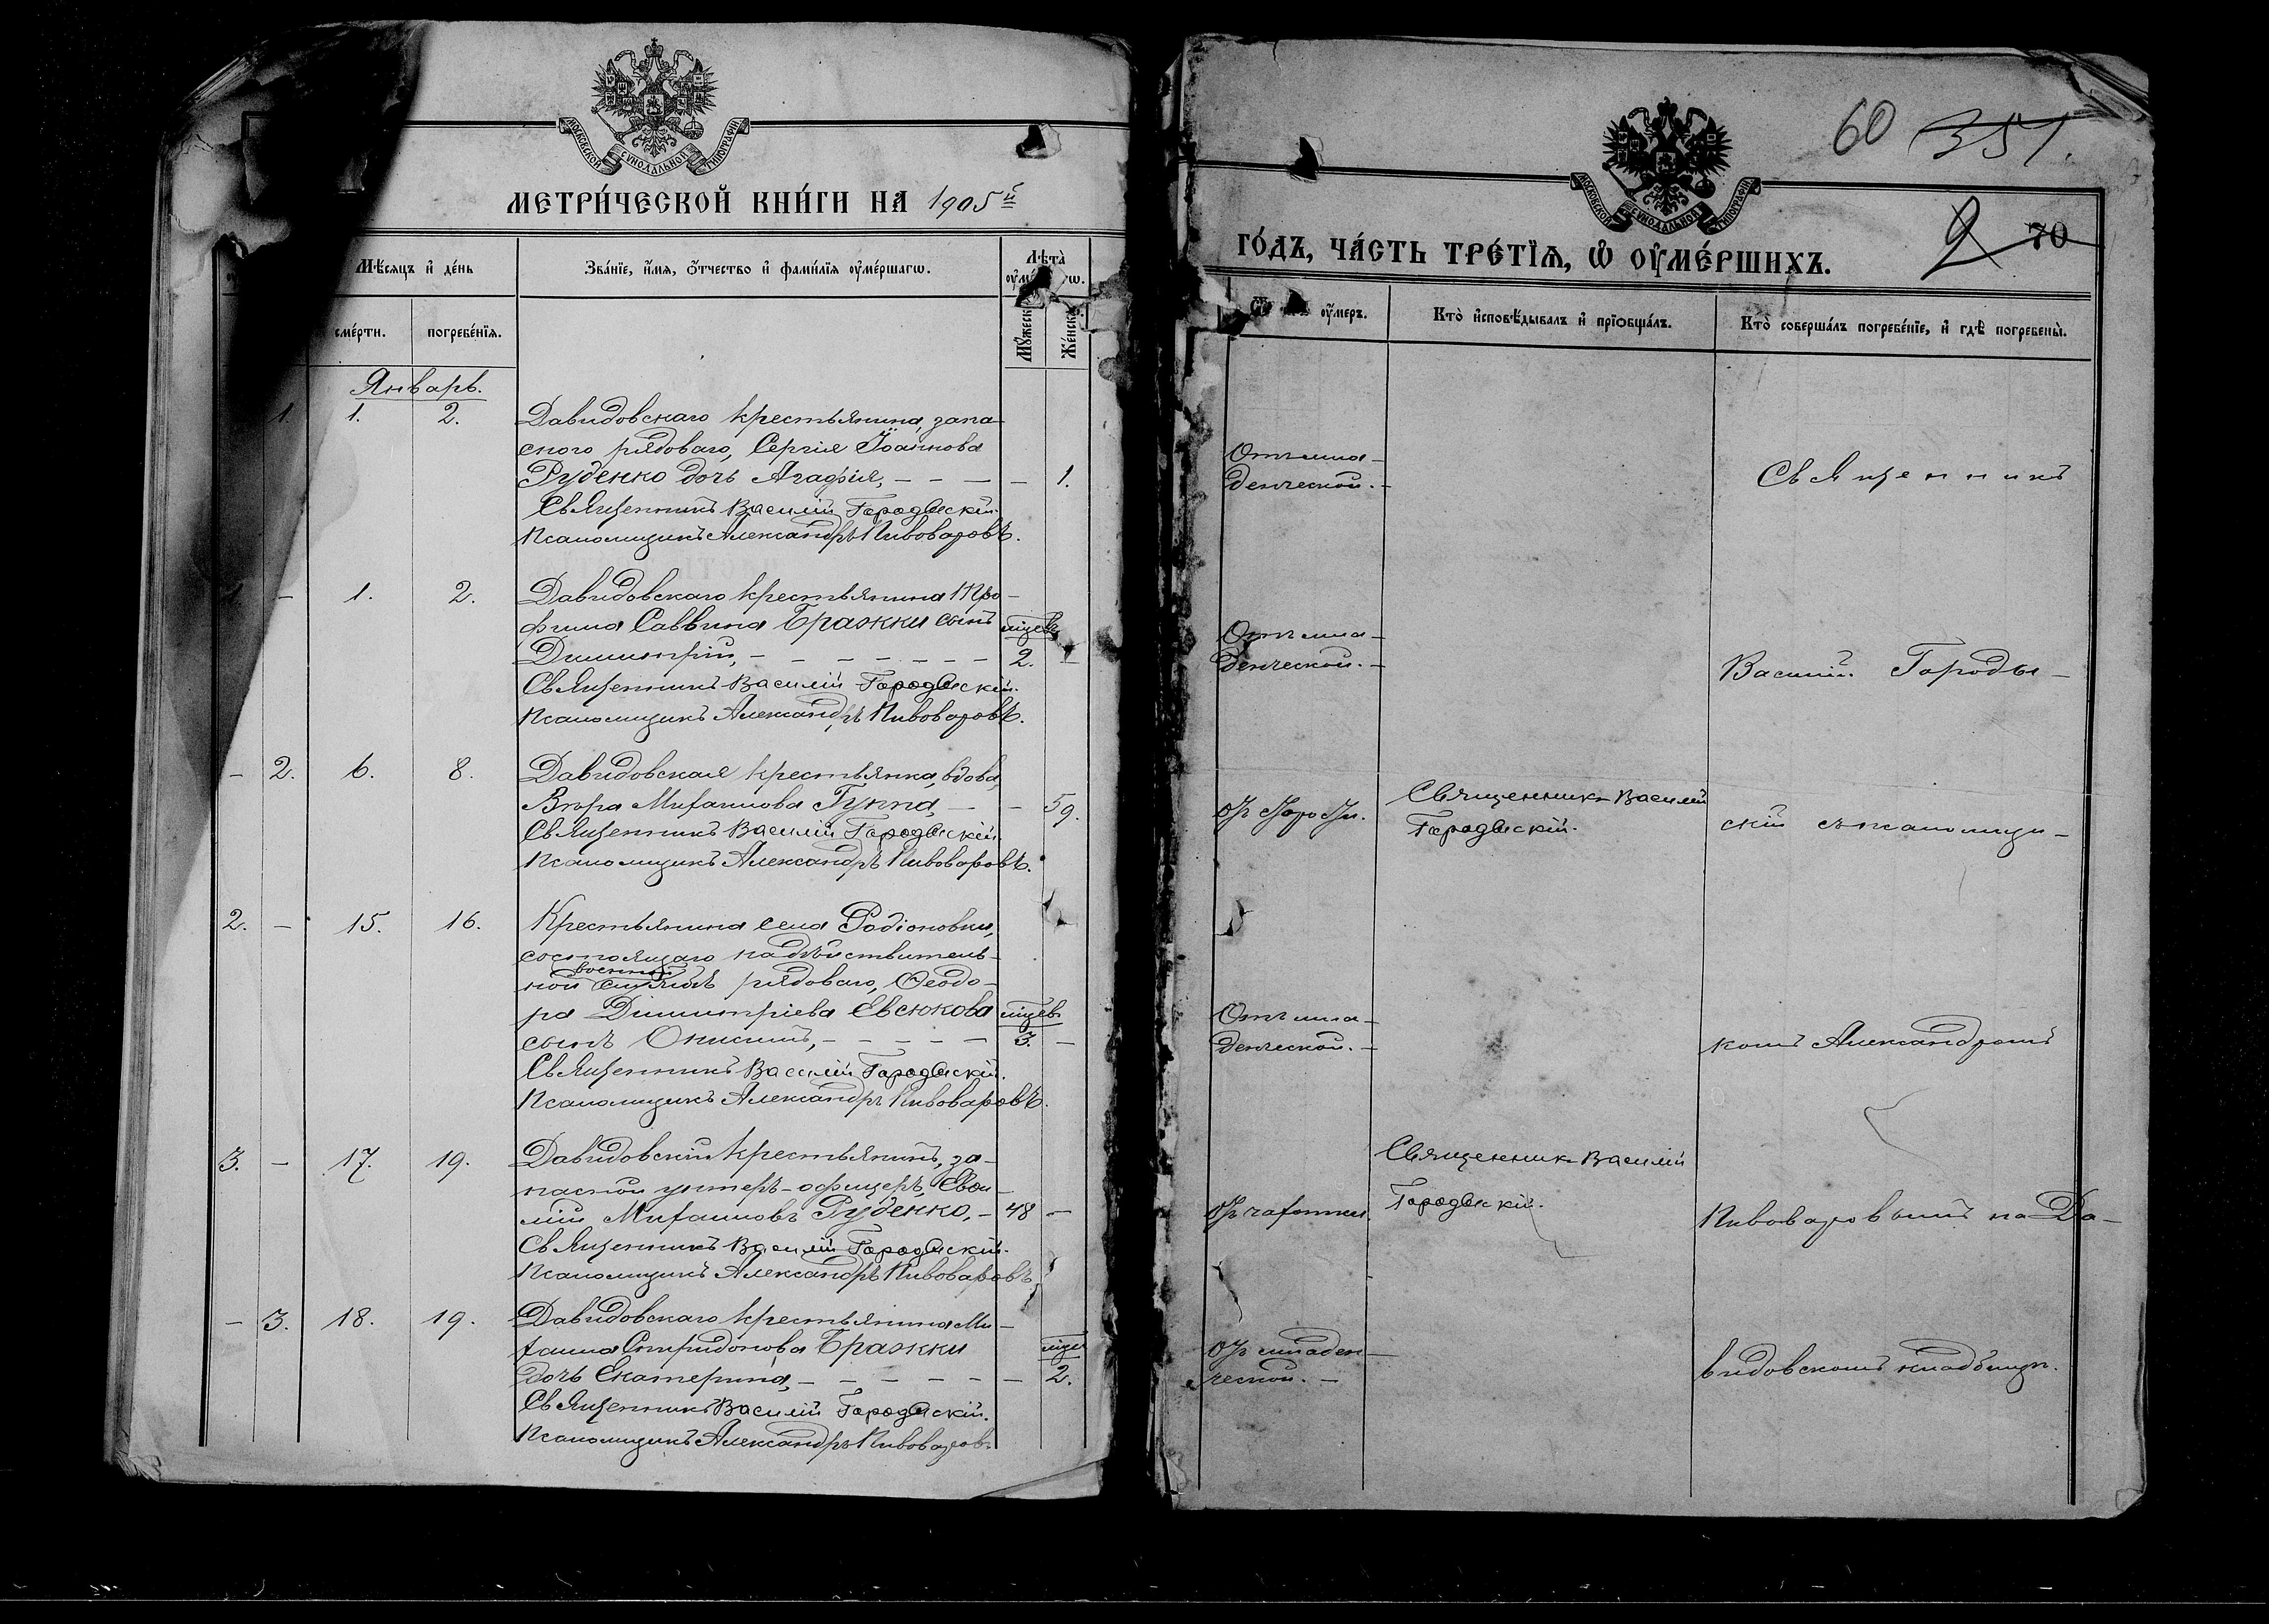 МОСКОВСКОЙ СѴНОДАЛЬНОЙ ТИПОГРАФІИ
МЕТРИ́ЧЕСКОЙ КНИ́ГИ НА 1905й
Мѣ́сяцъ и҆ де́нь
сме́рти.
погребе́нїѧ.
Зва́нїе, и҆́мѧ, ѻ҆́тчество и҆ фами́лїѧ ᲂу҆ме́ршагѡ.
Лѣ́та
Мꙋ́жеск
Же́нска
Январь.
1. 1. 2. Давидовскаго крестьянина, запа-
сного рядоваго, Сергія Іоаннова
Руденко дочь Агафія, – – – – 1.
Священникъ Василій Городыскій.
Псаломщикъ Александръ Пивоваровъ.
– 1. 2. Давидовскаго крестьянина Тро-
фима Саввина Бражки сынъ мцевъ
Димитрій, – – – – – – 2. –
Священникъ Василій Городыскій.
Псаломщикъ Александръ Пивоваровъ.
– 2. 6. 8. Давидовская крестьянка, вдова,
Вѣра Михаилова Гуппа, – – 59.
Священникъ Василій Городыскій.
Псаломщикъ Александръ Пивоваровъ.
2. – 15. 16. Крестьянина села Родіоновки,
состоящаго на дѣйствитель-
военной
ной службѣ рядоваго, Ѳеодо-
ра Димитріева Евсюкова мцевъ
сынъ Онисимъ, – – – – – 3. –
Священникъ Василій Городыскій.
Псаломщикъ Александръ Пивоваровъ.
3. – 17. 19. Давидовскій крестьянинъ, за-
пасной унтеръ-офицеръ, Евфи-
мій Михаиловъ Руденко, – 48 –
Священникъ Василій Городыскій.
Псаломщикъ Александръ Пивоваровъ
– 3. 18. 19. Давидовскаго крестьянина Ми-
хаила Спиридонова Бражки мцев
дочь Екатерина, – – – – – – 2.
Священникъ Василій Городыскій.
Псаломщикъ Александръ Пивоваровъ
60 351.
МОСКОВСКОЙ СѴНОДАЛЬНОЙ ТИПОГРАФІИ
2 70
ГО́ДЪ, ЧА́СТЬ ТРЕ́ТЇѦ, Ѡ҆ ОУ҆МЕ́РШИХЪ.
ᲂу҆́меръ.
Кто̀ и҆сповѣ́дывалъ и҆ прїѡбща́лъ.
Кто̀ соверша́лъ погребе́нїе, и҆ гдѣ̀ погребены̀.
Отъ мла-
денческой. –
Священникъ
Отъ мла-
денческой. –
Василій Городы-
Священникъ Василій
Городыскій.
скій съ псаломщи-
Отъ мла-
денческой. –
комъ Александромъ
Отъ чахотки.
Священникъ Василій
Городыскій.
Пивоваровымъ на Да-
Отъ младен-
ческой. –
видовскомъ кладбищѣ.